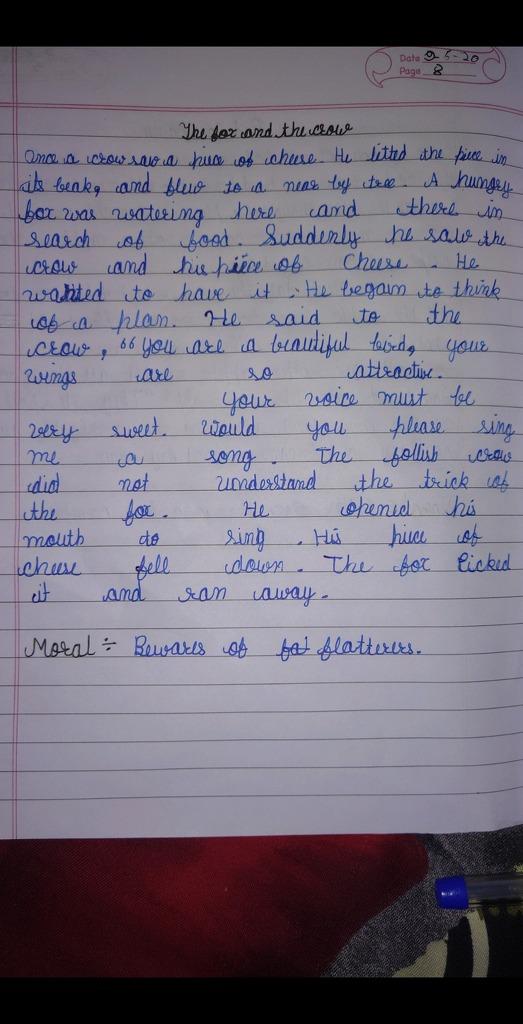 Date 2-5-20
Page 8
The fox and the crow
Once a crow saw a piece of cheese. He lifted the piece in
its beak, and flew to a near by tree. A hungry
fox was watering here and there in
search of food. Suddenly he saw the
crow and his piece of Cheese. He
wanted to have it. He begain to think
of a plan. He said to the
crow, "You are a beautiful bird, your
wings are so attractive.
Your voice must be
very sweet. Would you please sing
me a song. The follish crow
did not understand the trick of
the fox. He opened his
mouth to sing. His piece of
cheese fell down. The fox Picked
it and ran away.
Moral ÷ Bewares of flatterers.